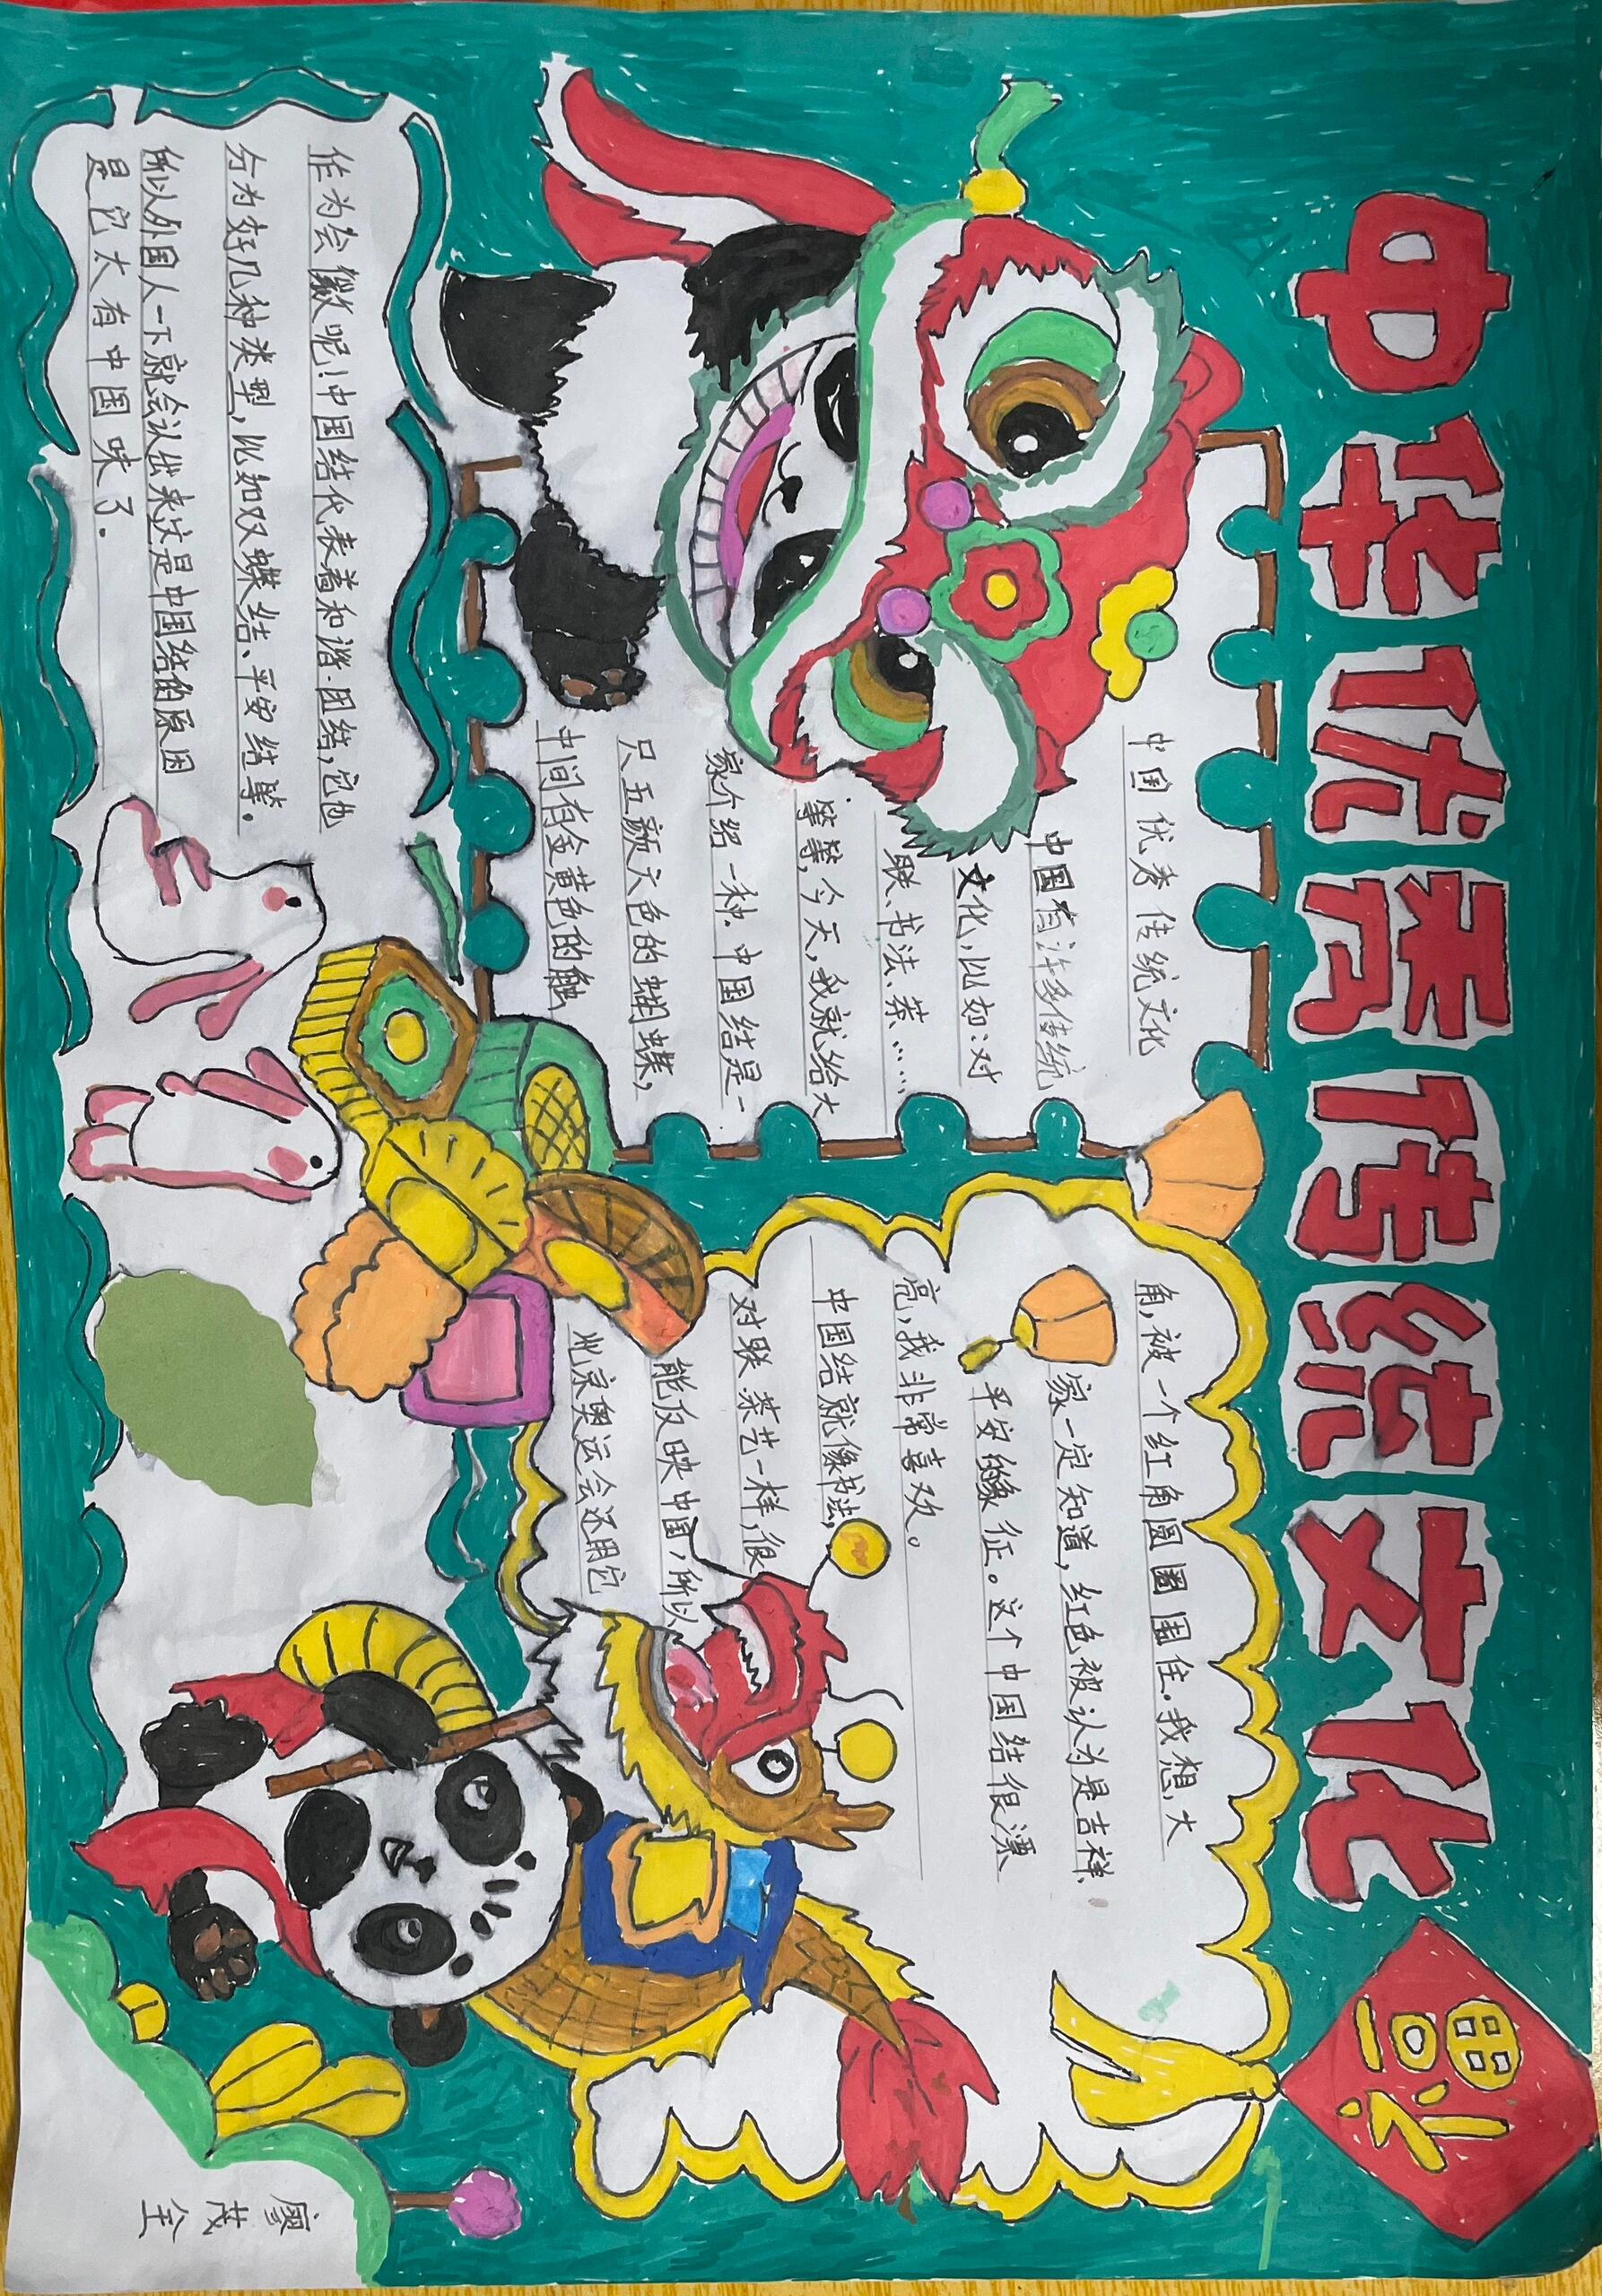 中华优秀传统文化
福
中国优秀传统文化
中国有许多传统
文化,比如:对
联、书法、茶……
等等,今天,我就给大
家介绍一种.中国结是一
只五颜六色的蝴蝶,
中间有金黄色的触
角,被一个红角圆圈围住.我想,大
家一定知道,红色被认为是吉祥.
平安的象征。这个中国结很漂
亮,我非常喜欢。
中国结就像书法,
对联.茶艺一样,很
能反映中国,所以
北京奥运会还用它
作为会徽呢!中国结代表着和谐.团结,它也
分为好几种类型,比如双蝶结、平安结等。
所以外国人一下就会认出来这是中国结的原因
是它太有中国味了.
廖茂全